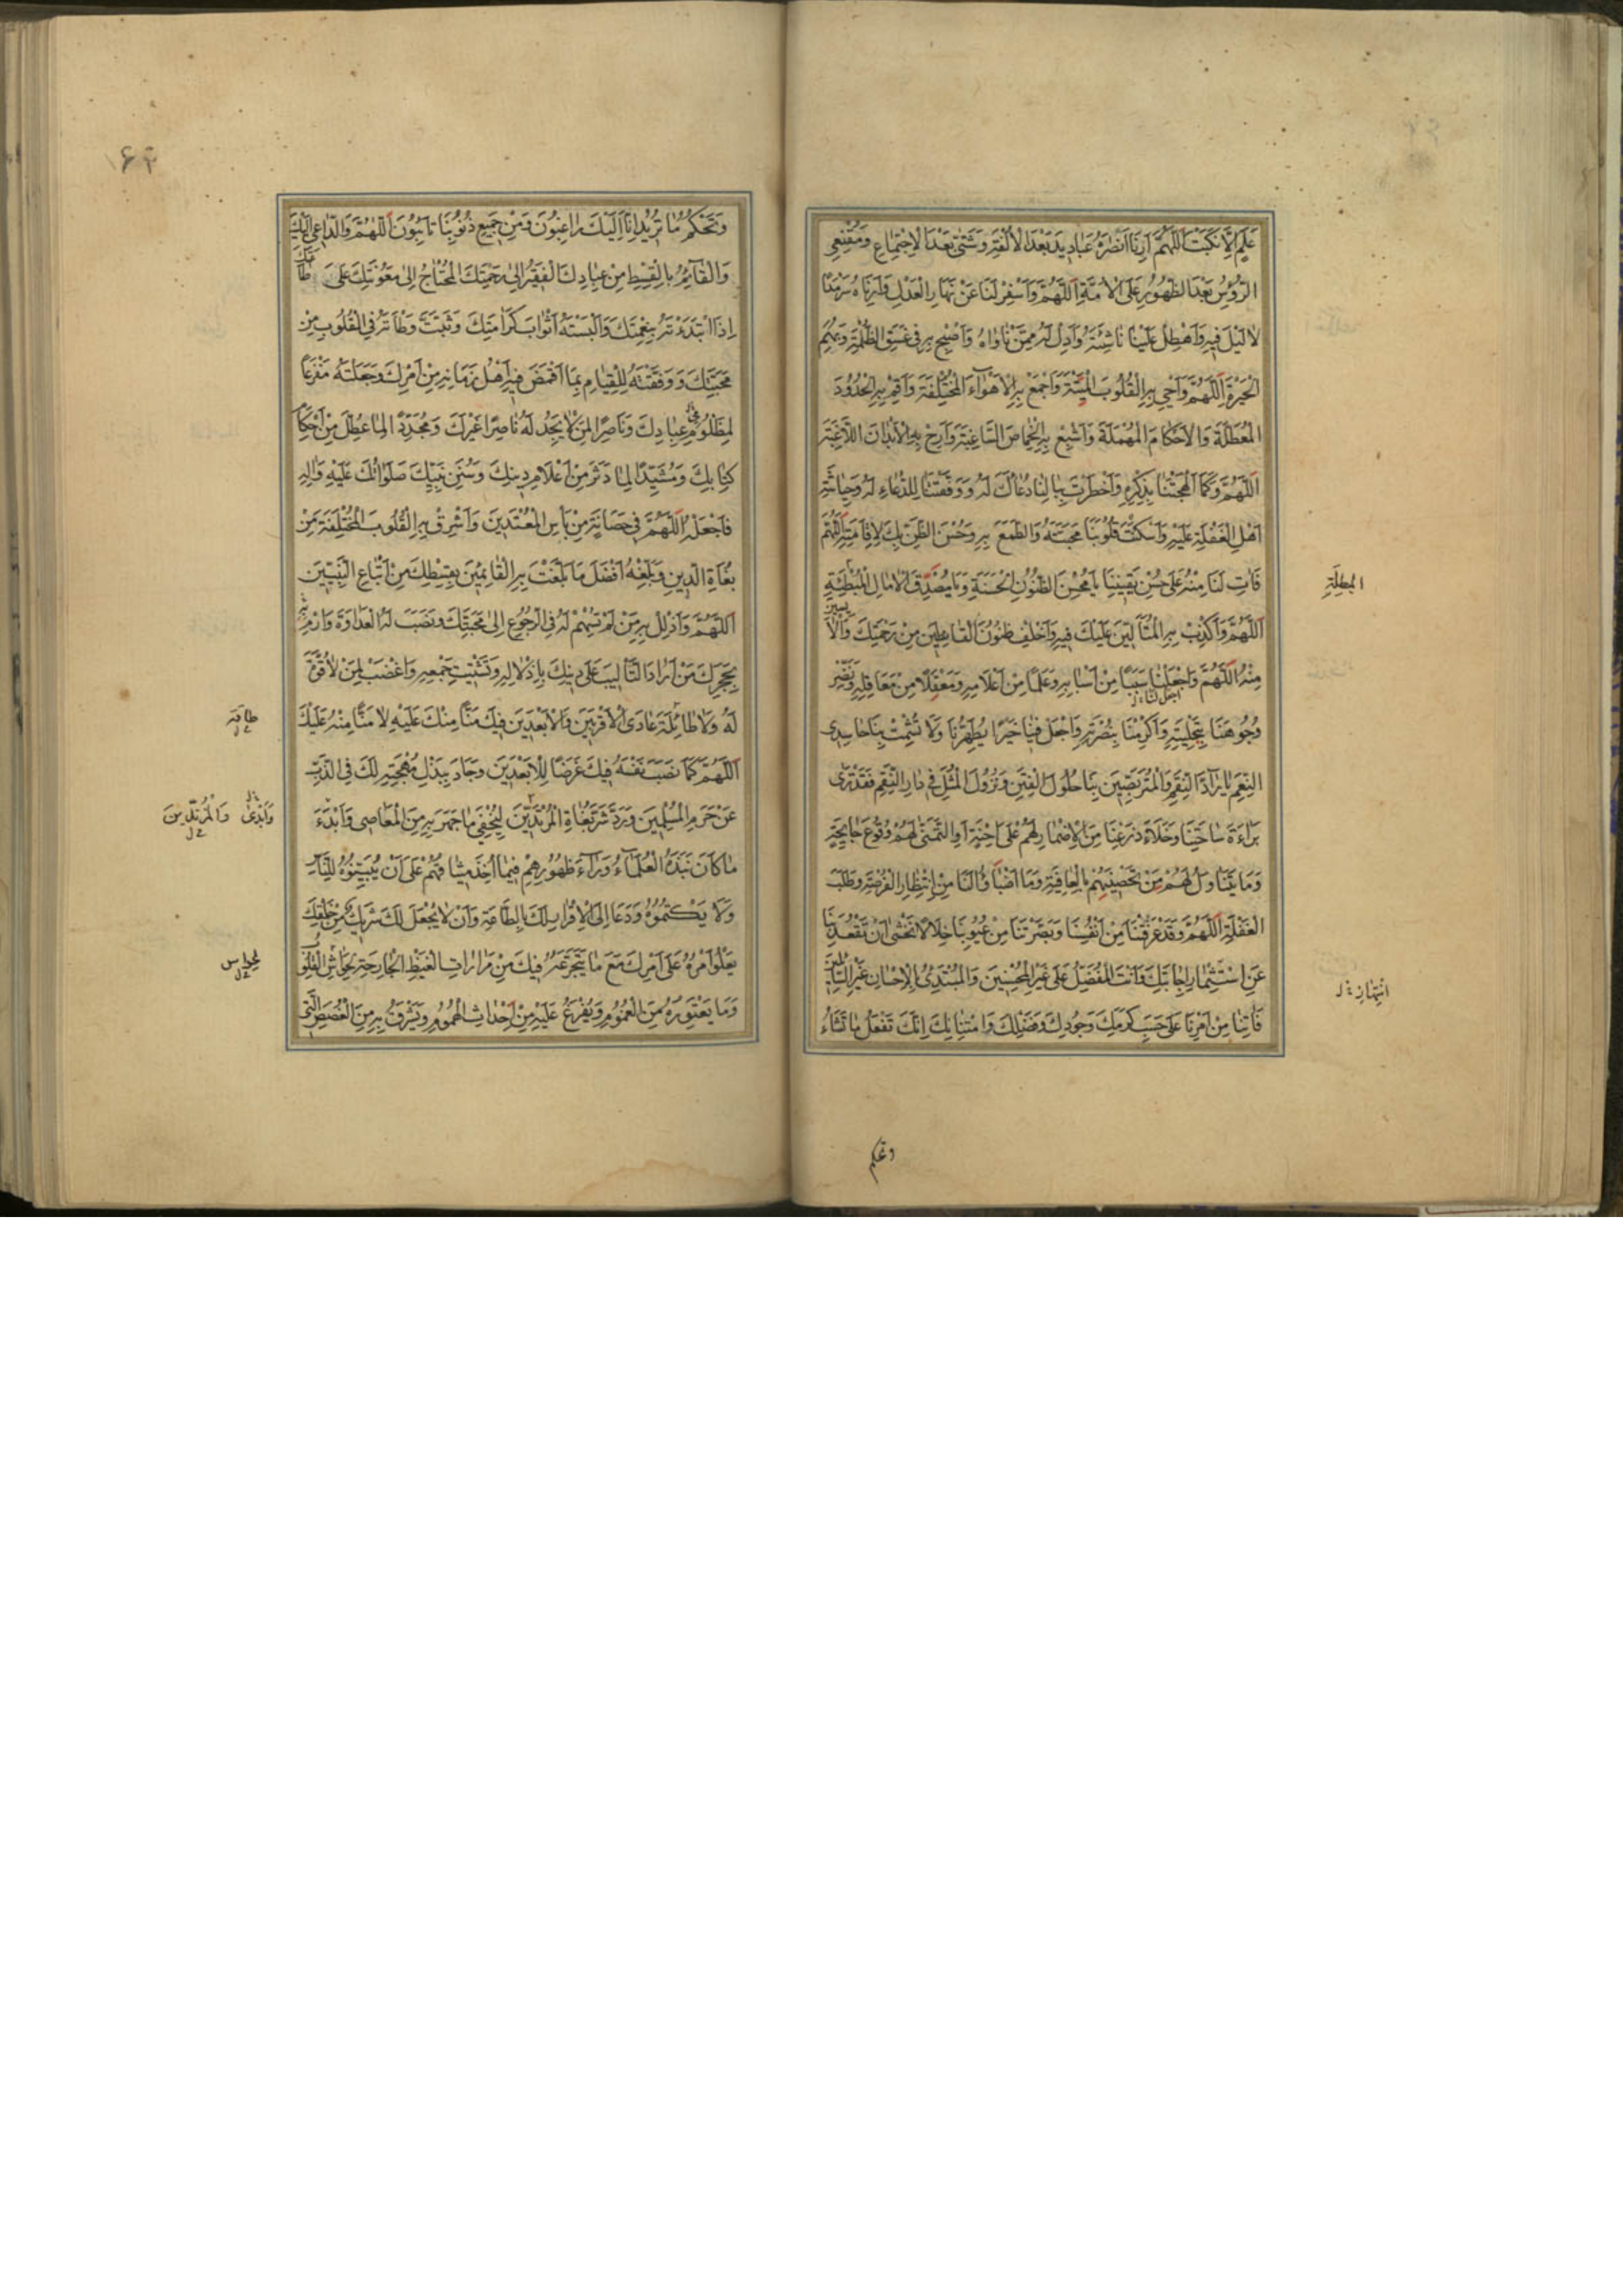 عَلَمٍ اِلَّا نَكَّبْتَ اَللّٰهُمَّ اَرِنَا اَنْصَارَهُ عَبَادِيدَ بَعْدَ الْأُلْفَةِ وَشَتّٰى بَعْدَ الْاِجْتِمَاعِ وَمُقْنِعِي
الرُّؤُسِ بَعْدَ الظُّهُورِ عَلَى الْاُمَّةِ اَللّٰهُمَّ وَاَسْفِرْ لَنَا عَنْ نَهَارِ الْعَدْلِ وَاَرِنَاهُ سَرْمَدًا
لَا لَيْلَ فِيهِ وَاهْطِلْ عَلَيْنَا نَاشِئَتَهُ وَاَدِلْ لَهُ مِمَّنْ نَاوَاهُ وَاَصْبِحْ بِهِ فِي غَسَقِ الظُّلْمَةِ وَبُهَمِ
الْحَيْرَةِ اَللّٰهُمَّ وَاَحْيِ بِهِ الْقُلُوبَ الْمَيِّتَةَ وَاجْمَعْ بِهِ الْاَهْوَاءَ الْمُخْتَلِفَةَ وَاَقِمْ بِهِ الْحُدُودَ
الْمُعَطَّلَةَ وَالْاَحْكَامَ الْمُهْمَلَةَ وَاَشْبِعْ بِهِ الْخِمَاصَ السَّاغِبَةَ وَاَرِحْ بِهِ الْاَبْدَانَ اللَّاغِبَةَ
اَللّٰهُمَّ وَكَمَا اَلْهَجْتَنَا بِذِكْرِهِ وَاَخْطَرْتَ بِبَالِنَا دُعَاكَ لَهُ وَوَفَّقْتَنَا لِلدُّعَاءِ لَهُ وَحِيَاشَةِ
اَهْلِ الْغَفْلَةِ عَلَيْهِ وَاَسْكَنْتَ قُلُوبَنَا مَحَبَّتَهُ وَالطَّمَعَ بِهِ وَحُسْنَ الظَّنِّ بِكَ لِاِقَامَتِهِ اَللّٰهُمَّ
فَاتِ لَنَا مِنْهُ عَلَى حُسْنِ يَقِينِنَا يَا مُحْسِنَ الظُّنُونِ الْحَسَنَةِ وَيَا مُصَدِّقَ الْآمَالِ الْمُبْطِئَةِ
المبطلة
اَللّٰهُمَّ وَاَكْذِبْ بِهِ الْمُتَاَلِّينَ عَلَيْكَ فِيهِ وَاَخْلِفْ ظُنُونَ الْقَانِطِينَ مِنْ رَحْمَتِكَ وَالْاٰيِسِينَ
مِنْهُ اَللّٰهُمَّ وَاجْعَلْنَا سَبَبًا مِنْ اَسْبَابِهِ وَعَلَمًا مِنْ اَعْلَامِهِ وَمَعْقِلًا مِنْ مَعَاقِلِهِ وَنَضِّرْ
وُجُوهَنَا بِتَحْلِيَتِهِ وَاَكْرِمْنَا بِنُصْرَتِهِ وَاجْعَلْ فِينَا خَيْرًا يُطَهِّرُنَا وَلَا تُشْمِتْ بِنَا حَاسِدِي
النِّعَمِ يَا رَادَّ النِّقَمِ وَالْمُتَرَبِّصِينَ بِنَا حُلُولَ الْفِتَنِ وَنُزُولَ الْمُثَلِ فِي دَارِ النِّقَمِ فَقَدْ تَرٰى
بَرَاءَةَ سَاحَتِنَا وَخَلَاءَ ذَرْعِنَا مِنَ الْاِضْمَارِ لَهُمْ عَلَى اِحْنَةٍ اَوِ التَّمَنِّي لَهُمْ وُقُوعَ جَايِحَةٍ
وَمَا يَتَنَاوَلُ لَهُمْ مِنْ تَحْصِينِهِمْ بِالْعَافِيَةِ وَمَا اَضْبَاؤُا لَنَا مِنْ اِنْتِظَارِ الْفُرْصَةِ وَطَلَبِ
الْغَفْلَةِ اَللّٰهُمَّ وَقَدْ عَرَّفْتَنَا مِنْ اَنْفُسِنَا وَبَصَّرْتَنَا مِنْ عُيُوبِنَا خِلَالًا نَخْشٰى اَنْ تَقْعُدَ بِنَا
عَنِ اسْتِثْمَارِ اِجَابَتِكَ وَاَنْتَ الْمُفَضِّلُ عَلَى غَيْرِ الْمُحْسِنِينَ وَالْمُبْتَدِئُ بِالْاِحْسَانِ غَيْرَ السَّائِلِينَ
انتهاز
فَاٰتِنَا مِنْ اَمْرِنَا عَلَى حَسَبِ كَرَمِكَ وَجُودِكَ وَفَضْلِكَ وَامْتِنَانِكَ اِنَّكَ تَفْعَلُ مَا تَشَاءُ
وتحكم
۱۶۲
وَتَحْكُمُ مَا تُرِيدُ اِنَّا اِلَيْكَ رَاغِبُونَ وَمِنْ جَمِيعِ ذُنُوبِنَا تَائِبُونَ اَللّٰهُمَّ وَالدَّاعِي اِلَيْكَ
وَالْقَائِمُ بِالْقِسْطِ مِنْ عِبَادِكَ الْفَقِيرُ اِلٰى رَحْمَتِكَ الْمُحْتَاجُ اِلٰى مَعُونَتِكَ عَلَى طَاعَتِكَ
اِذَا ابْتَدَءْتَهُ بِنِعْمَتِكَ وَاَلْبَسْتَهُ اَثْوَابَ كَرَامَتِكَ وَثَبَّتَّ وَطْاَتَهُ فِي الْقُلُوبِ مِنْ
مَحَبَّتِكَ وَوَفَّقْتَهُ لِلْقِيَامِ بِمَا اَغْمَضَ فِيهِ اَهْلُ زَمَانِهِ مِنْ اَمْرِكَ وَجَعَلْتَهُ مَفْزَعًا
لِمَظْلُومِ عِبَادِكَ وَنَاصِرًا لِمَنْ لَا يَجِدُ لَهُ نَاصِرًا غَيْرَكَ وَمُجَدِّدًا لِمَا عُطِّلَ مِنْ اَحْكَامِ
كِتَابِكَ وَمُشَيِّدًا لِمَا دَثَرَ مِنْ اَعْلَامِ دِينِكَ وَسُنَنِ نَبِيِّكَ صَلَوَاتُكَ عَلَيْهِ وَاٰلِهِ
فَاجْعَلْهُ اَللّٰهُمَّ فِي حَصَانَةٍ مِنْ بَاْسِ الْمُعْتَدِينَ وَاَشْرِقْ بِهِ الْقُلُوبَ الْمُخْتَلِفَةَ مِنْ
بُغَاةِ الدِّينِ وَبَلِّغْهُ اَفْضَلَ مَا بَلَّغْتَ بِهِ الْقَائِمِينَ بِقِسْطِكَ مِنْ اَتْبَاعِ النَّبِيِّينَ
اَللّٰهُمَّ وَاَذْلِلْ بِهِ مَنْ لَمْ تُسْهِمْ لَهُ فِي الرُّجُوعِ اِلٰى مَحَبَّتِكَ وَنَصَبَ لَهُ الْعَدَاوَةَ وَارْمِ
بِحَجَرِكَ مَنْ اَرَادَ التَّاْلِيبَ عَلَى دِينِكَ بِاِذْلَالِهِ وَتَشْتِيتِ جَمْعِهِ وَاغْضَبْ لِمَنْ لَا قُوَّةَ
لَهُ وَلَا طَائِلَةَ عَادَى الْاَقْرَبِينَ وَالْاَبْعَدِينَ فِيكَ مَنًّا مِنْكَ عَلَيْهِ لَا مَنًّا مِنْهُ عَلَيْكَ
طاقة
اَللّٰهُمَّ كَمَا نَصَبَ نَفْسَهُ فِيكَ غَرَضًا لِلْاَبْعَدِينَ وَجَادَ بِبَذْلِ مُهْجَتِهِ لَكَ فِي الذَّبِّ
عَنْ حَرَمِ الْمُسْلِمِينَ وَرَدَّ شَرَّ بُغَاةِ الْمُرْتَدِّينَ لِيُخْفِيَ مَا جَهَرَ بِهِ مِنَ الْمَعَاصِي وَاَبْدَءَ
وَاَبْدٰى وَالْمُرْتَدِّينَ
مَا كَانَ نَبَذَهُ الْعُلَمَاءُ وَرَاءَ ظُهُورِهِمْ فِيمَا اَخَذَ مِيثَاقَهُمْ عَلَى اَنْ يُبَيِّنُوهُ لِلنَّاسِ
وَلَا يَكْتُمُوهُ وَدَعَا اِلَى الْاِقْرَارِ لَكَ بِالطَّاعَةِ وَاَنْ لَا يَجْعَلَ لَكَ شَرِيكًا مِنْ خَلْقِكَ
يَعْلُو اَمْرُهُ عَلَى اَمْرِكَ مَعَ مَا يَتَجَرَّعُهُ فِيكَ مِنْ مَرَارَاتِ الْغَيْظِ الْجَارِحَةِ بِحَوَاشِ الْقُلُوبِ
بحواس
وَمَا يَعْتَوِرُهُ مِنَ الْغُمُومِ وَيَفْرَعُ عَلَيْهِ مِنْ اَحْدَاثِ الْهُمُومِ وَيَشْرَقُ بِهِ مِنَ الْغُصَصِ الَّتِي